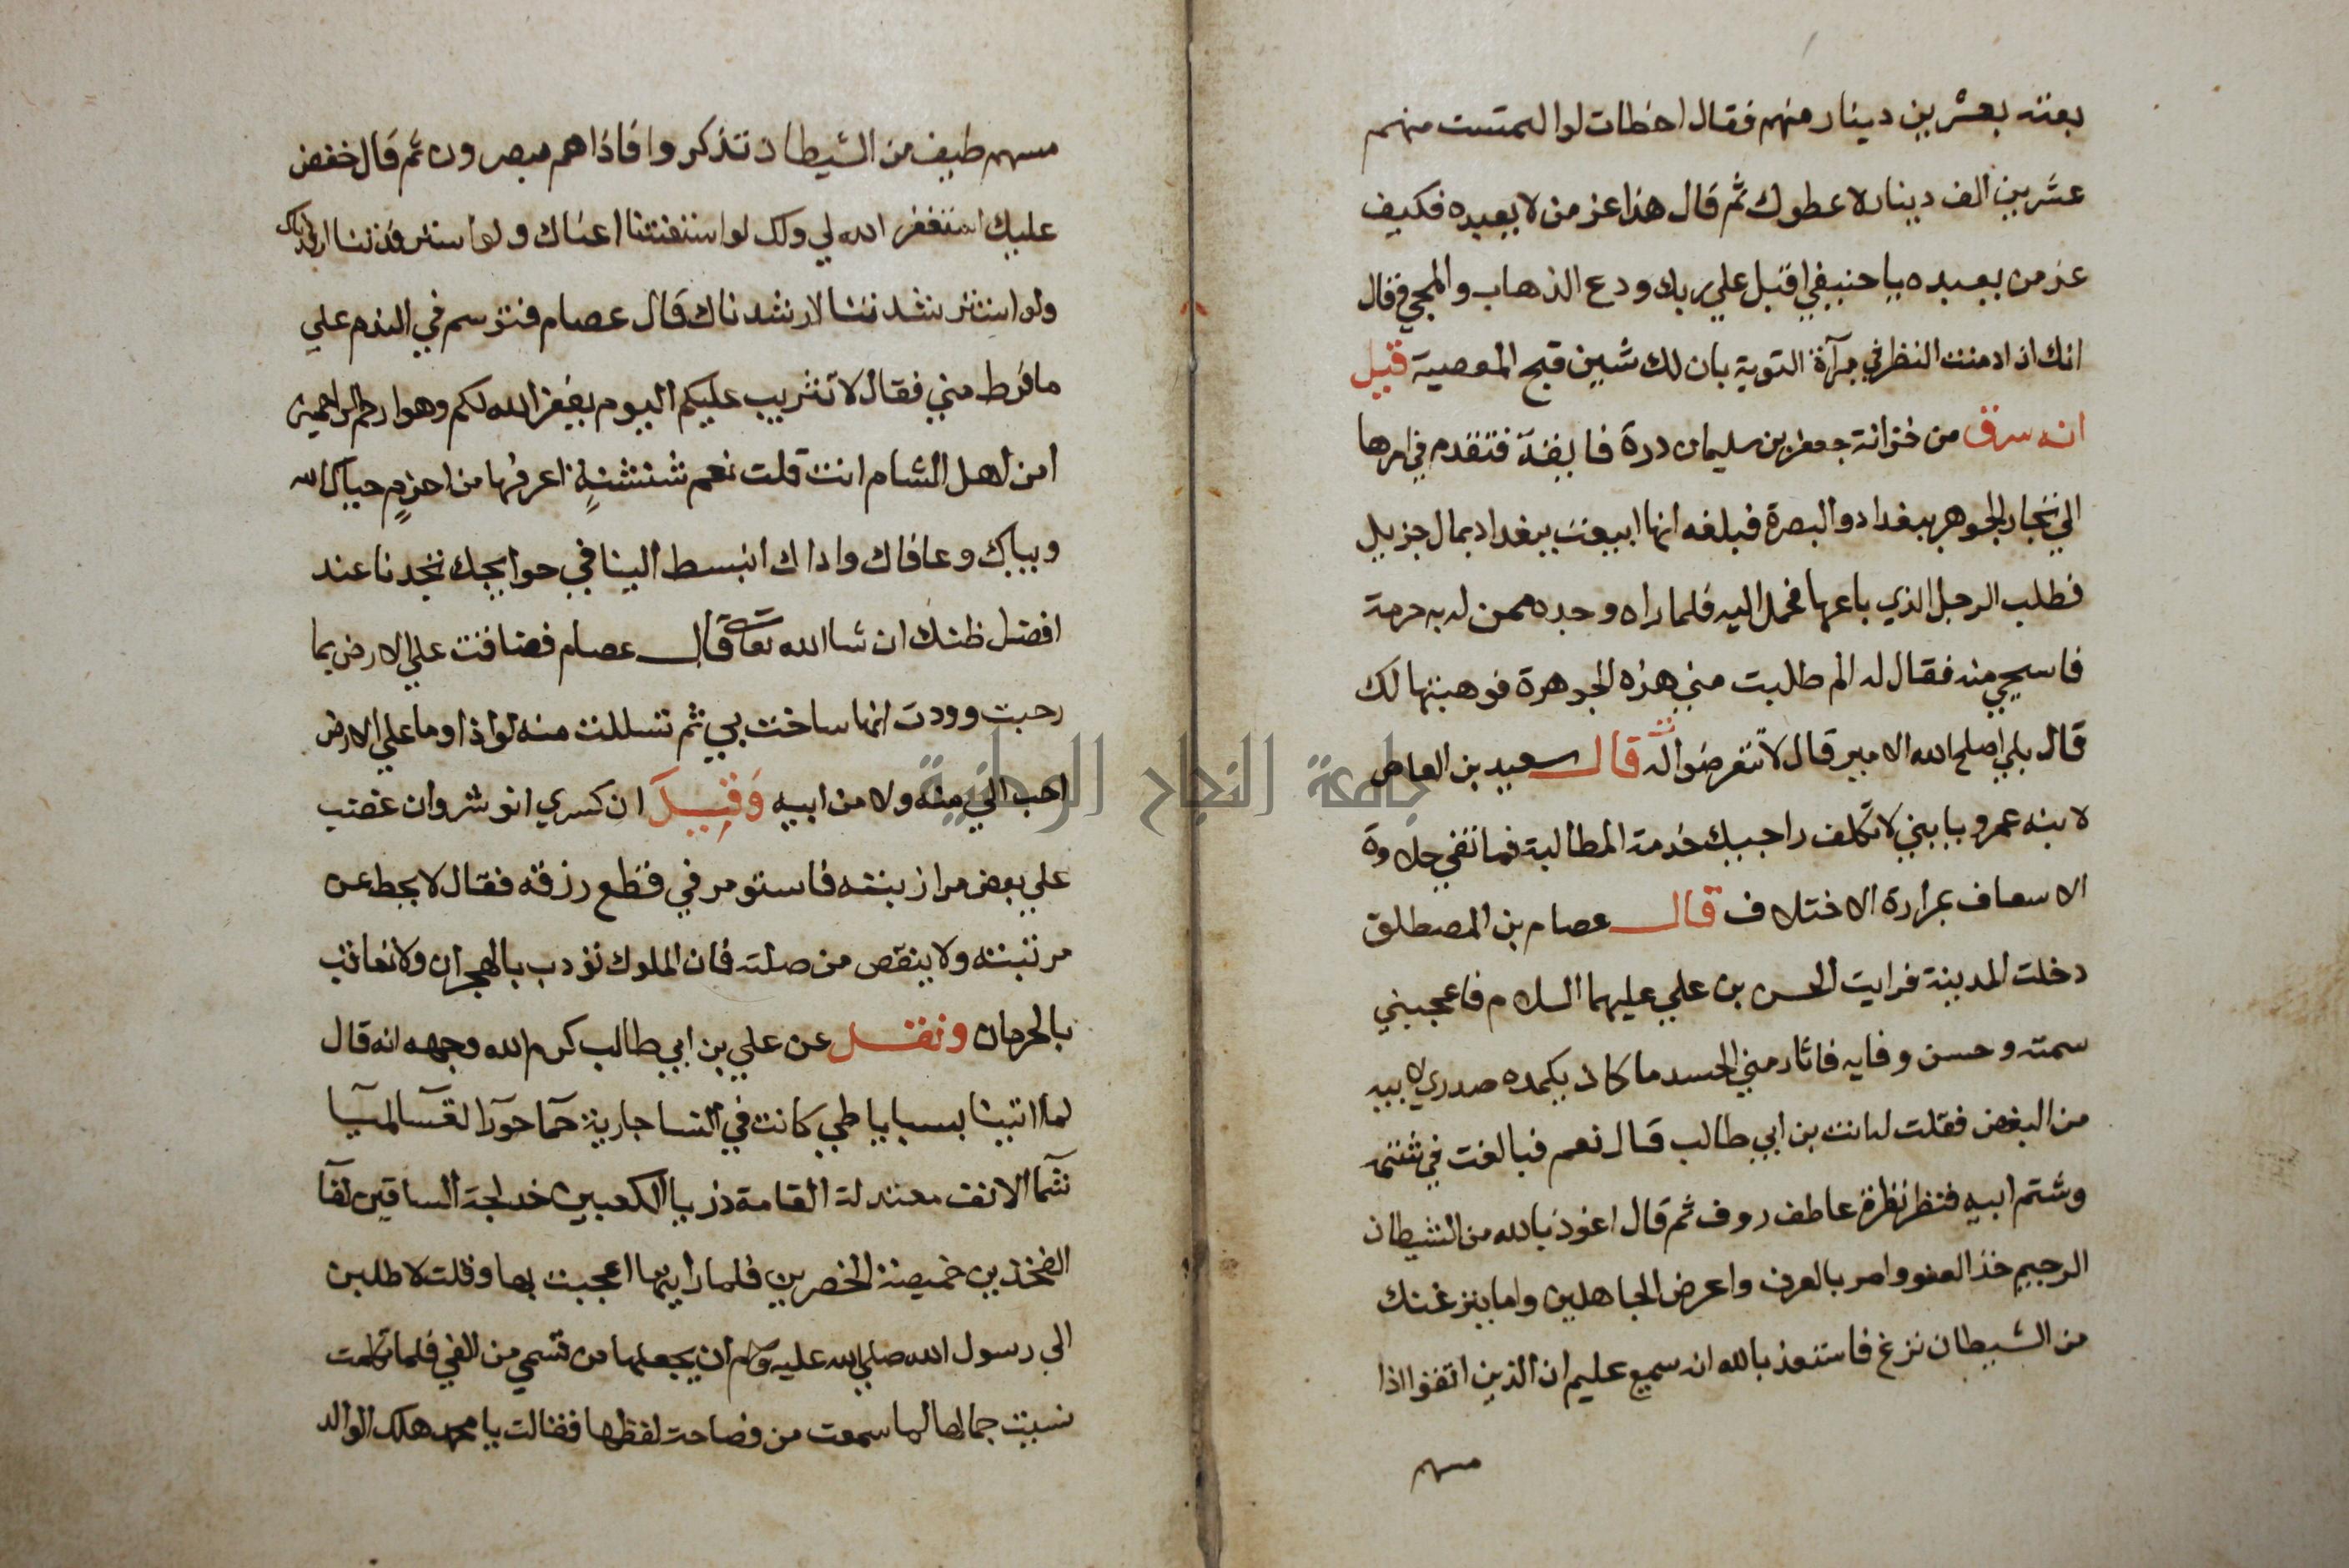 بعته بعشرين دينار منهم فقال اخطات لوا لتمست منهم
عشرين الف دينار لاعطوك ثم قال هذا عز من لا يعبده فكيف
عز من يعبده يا حنيفي اقبل علي ربك ودع الذهاب والمجي وقال
انك اذا دمنت النظر في مرآة التوبة بان لك شين قبح المعصية قيل
انه سرق من خزانة جعفر بن سليمان درة فايقة فتقدم في امرها
الي تجار الجوهر ببغداد والبصرة فبلغه انها ابيعت ببغداد بمال جزيل
فطلب الرجل الذي باعها فحمل اليه فلما راه وجده ممن له به حرمة
فاسحي منه فقال له الم طلبت مني هذه الجوهرة فوهبتها لك
قال بلي اصلح الله الامير قال لا تتعرضوا له قال سعيد بن العاص
لابنه عمرو يا بني لا تكلف راجيك خدمة المطالبة فما تفي حلاوة
الاسعاف بمرارة الاختلاف قال عصام بن المصطلق
دخلت المدينة فرايت الحسن بن علي عليهما السلام فاعجبني
سمته وحسن وفايه فاثار مني الحسد ما كان يكمده صدري لابيه
من البغض فقلت له انت بن ابي طالب قال نعم فبالغت في شتمه
وشتم ابيه فنظر نظرة عاطف روف ثم قال اعوذ بالله من الشيطان
الرجيم خذ العفو وامر بالعرف واعرض الجاهلين واما ينزغنك
من الشيطان نزغ فاستعذ بالله انه سميع عليم ان الذين اتقوا اذا
مسهم
مسهم طيف من الشيطان تذكروا فاذا هم مبصرون ثم قال خفض
عليك استغفر الله لي ولك لو استعنتنا اعناك ولو استرفدتنا ارفدناك
ولو استرشدتنا لارشدناك قال عصام فتوسم في الندم علي
ما فرط مني فقال لا تثريب عليكم اليوم يغفر الله لكم وهو ارحم الراحمين
امن اهل الشام انت قلت نعم شنشنة اعرفها من اخزم حياك الله
وبياك وعافاك واداك انبسط الينا في حوايجك تجدنا عند
افضل ظنك ان شا الله تعالى قال عصام فضاقت علي الارض بما
رحبت ووددت انها ساخت بي ثم تسللت منه لواذا وما علي الارض
احب الي منه ولا من ابيه وقيل ان كسري انو شروان غضب
علي بعض مرازبته فاستومر في قطع رزقه فقال لا يحط عن
مرتبته ولا ينقص من صلته فان الملوك تودب بالهجران ولا تعاقب
بالحرمان ونقل عن علي بن ابي طالب كرم الله وجهه انه قال
لما اتينا بسبايا طي كانت في النسا جارية حما حورا لعسا لميا
شما الانف معتدلة القامة ذربا الكعبين خدلجة الساقين لفا
الفخذين خميصة الخصرين فلما رايتها اعجبت بها وقلت لاطلبن
الي رسول الله صلي الله عليه وسلم ان يجعلها من قسمي من الفي فلما تكلمت
نسيت جمالها لما سمعت من فصاحة لفظها فقالت يا محمد هلك الوالد
جامعة النجاح الوطنية